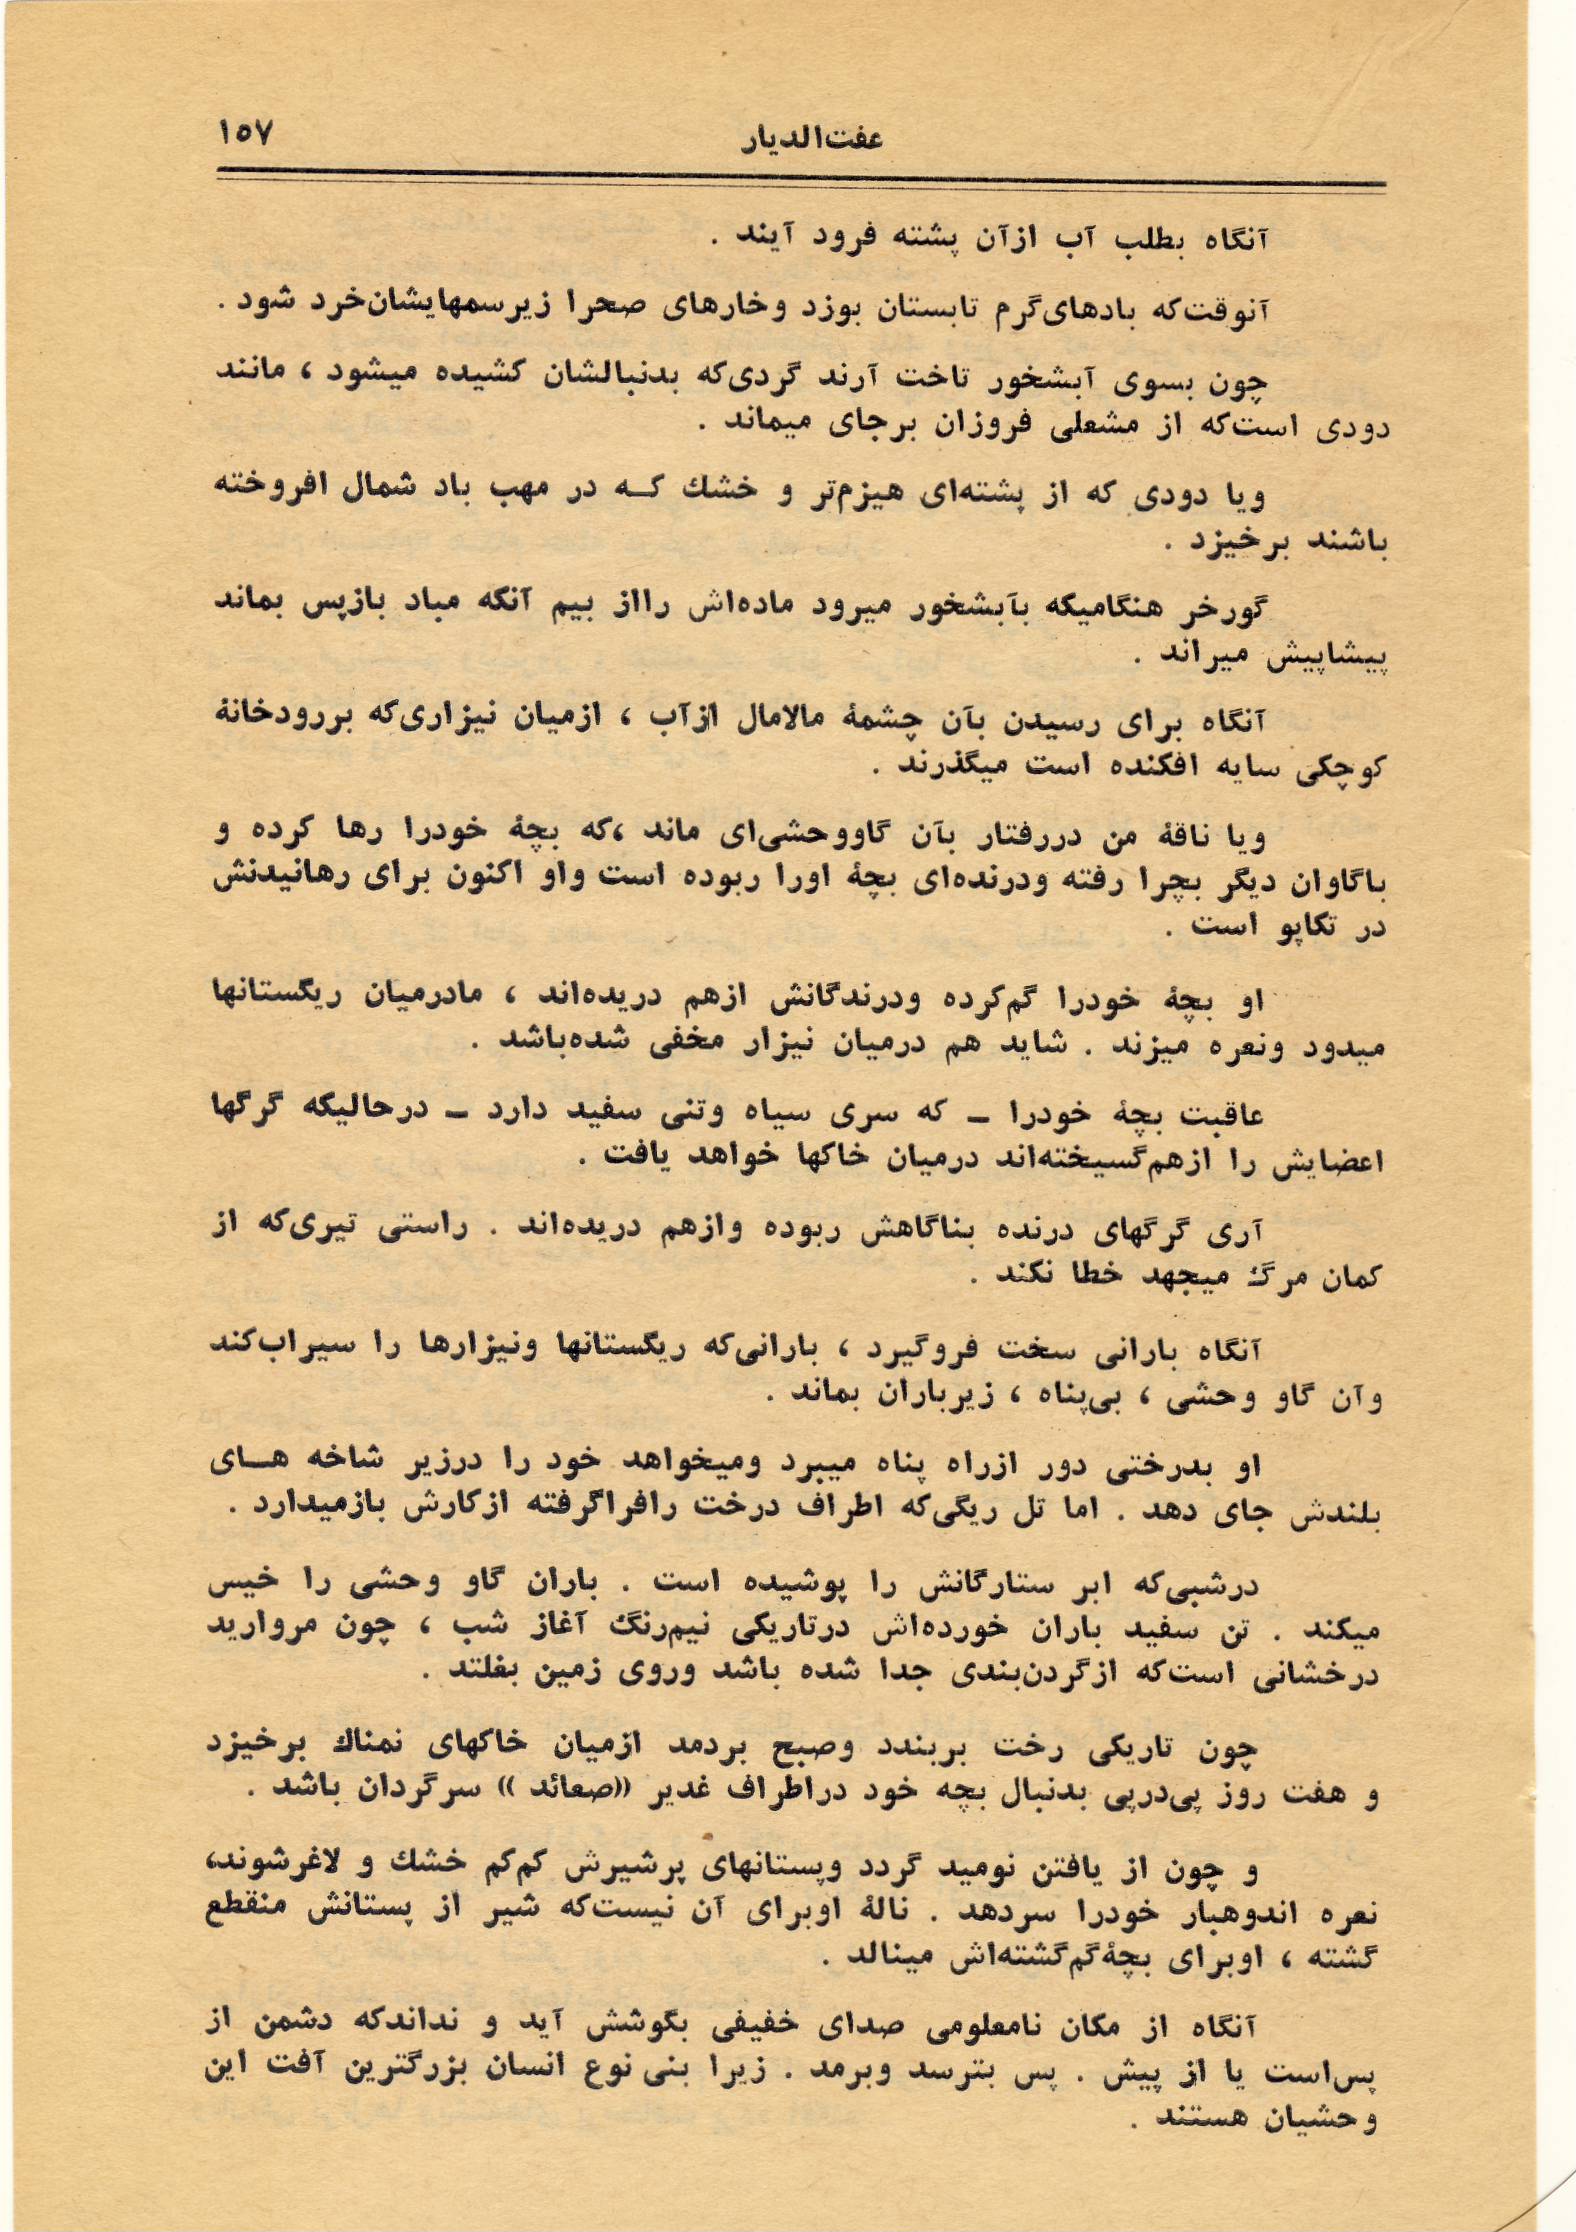 عفت‌الدیار ۱۵۷
آنگاه بطلب آب ازآن پشته فرود آیند .
آنوقت‌که بادهای‌گرم تابستان بوزد وخارهای صحرا زیرسمهایشان‌خرد شود .
چون بسوی آبشخور تاخت آرند گردی‌که بدنبالشان کشیده میشود ، مانند
دودی است‌که از مشعلی فروزان برجای میماند .
ویا دودی که از پشته‌ای هیزم‌تر و خشك کــه در مهب باد شمال افروخته
باشند برخیزد .
گورخر هنگامیکه بآبشخور میرود ماده‌اش رااز بیم آنکه مباد بازپس بماند
پیشاپیش میراند .
آنگاه برای رسیدن بآن چشمهٔ مالامال ازآب ، ازمیان نیزاری‌که بررودخانهٔ
کوچکی سایه افکنده است میگذرند .
ویا ناقهٔ من دررفتار بآن گاووحشی‌ای ماند ،که بچهٔ خودرا رها کرده و
باگاوان دیگر بچرا رفته ودرنده‌ای بچهٔ اورا ربوده است واو اکنون برای رهانیدنش
در تکاپو است .
او بچهٔ خودرا گم‌کرده ودرندگانش ازهم دریده‌اند ، مادرمیان ریگستانها
میدود ونعره میزند . شاید هم درمیان نیزار مخفی شده‌باشد .
عاقبت بچهٔ خودرا ــ که سری سیاه وتنی سفید دارد ــ درحالیکه گرگها
اعضایش را ازهم‌گسیخته‌اند درمیان خاکها خواهد یافت .
آری گرگهای درنده بناگاهش ربوده وازهم دریده‌اند . راستی تیری‌که از
کمان مرگ میجهد خطا نکند .
آنگاه بارانی سخت فروگیرد ، بارانی‌که ریگستانها ونیزارها را سیراب‌کند
وآن گاو وحشی ، بی‌پناه ، زیرباران بماند .
او بدرختی دور ازراه پناه میبرد ومیخواهد خود را درزیر شاخه هــای
بلندش جای دهد . اما تل ریگی‌که اطراف درخت رافراگرفته ازکارش بازمیدارد .
درشبی‌که ابر ستارگانش را پوشیده است . باران گاو وحشی را خیس
میکند . تن سفید باران خورده‌اش درتاریکی نیم‌رنگ آغاز شب ، چون مروارید
درخشانی است‌که ازگردن‌بندی جدا شده باشد وروی زمین بغلتد .
چون تاریکی رخت بربندد وصبح بردمد ازمیان خاکهای نمناك برخیزد
و هفت روز پی‌درپی بدنبال بچه خود دراطراف غدیر «صعائد » سرگردان باشد .
و چون از یافتن نومید گردد وپستانهای پرشیرش کم‌کم خشك و لاغرشوند،
نعره اندوهبار خودرا سردهد . نالهٔ اوبرای آن نیست‌که شیر از پستانش منقطع
گشته ، اوبرای بچهٔ‌گم‌گشته‌اش مینالد .
آنگاه از مکان نامعلومی صدای خفیفی بگوشش آید و نداندکه دشمن از
پس‌است یا از پیش . پس بترسد وبرمد . زیرا بنی نوع انسان بزرگترین آفت این
وحشیان هستند .